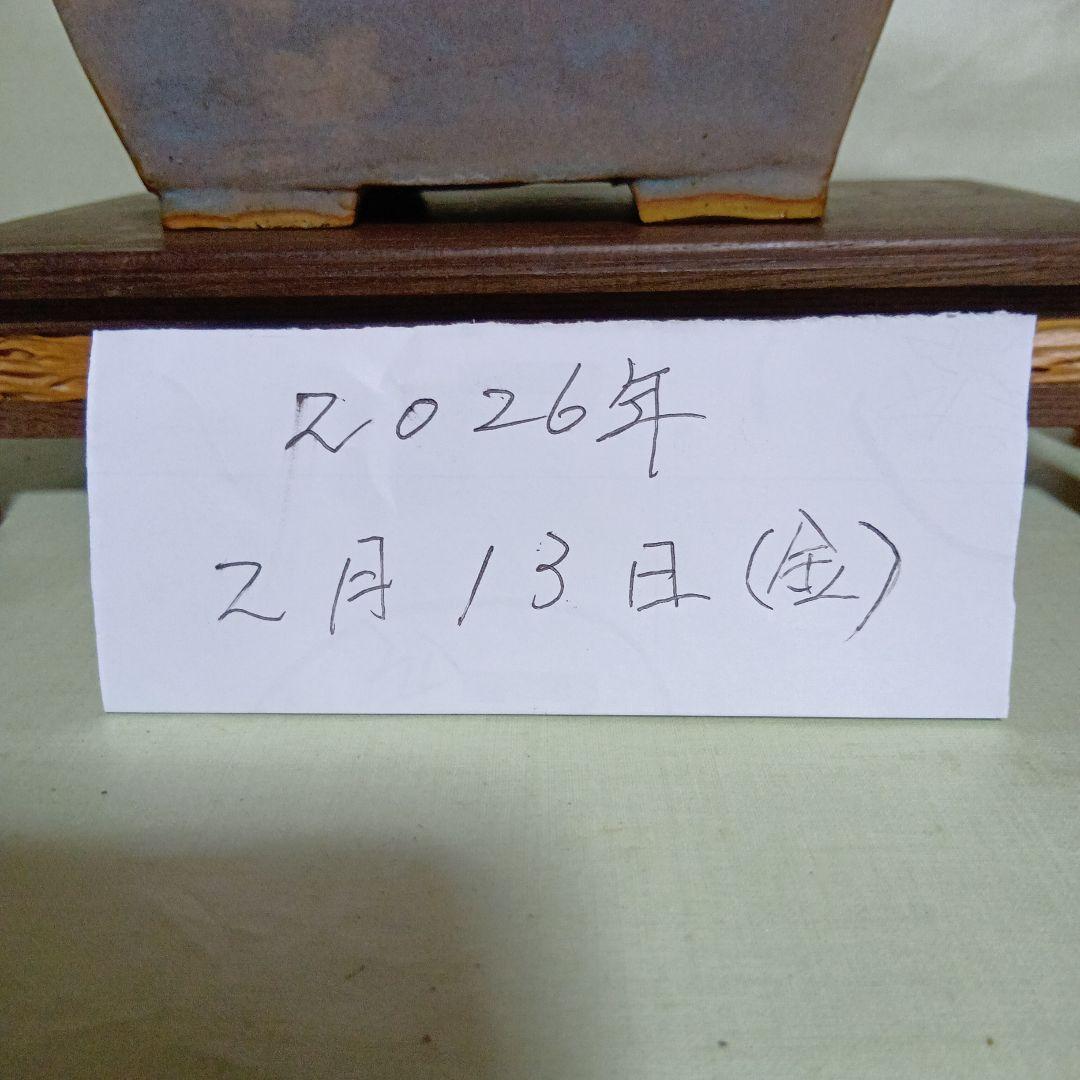 2026年
2月13日(金)